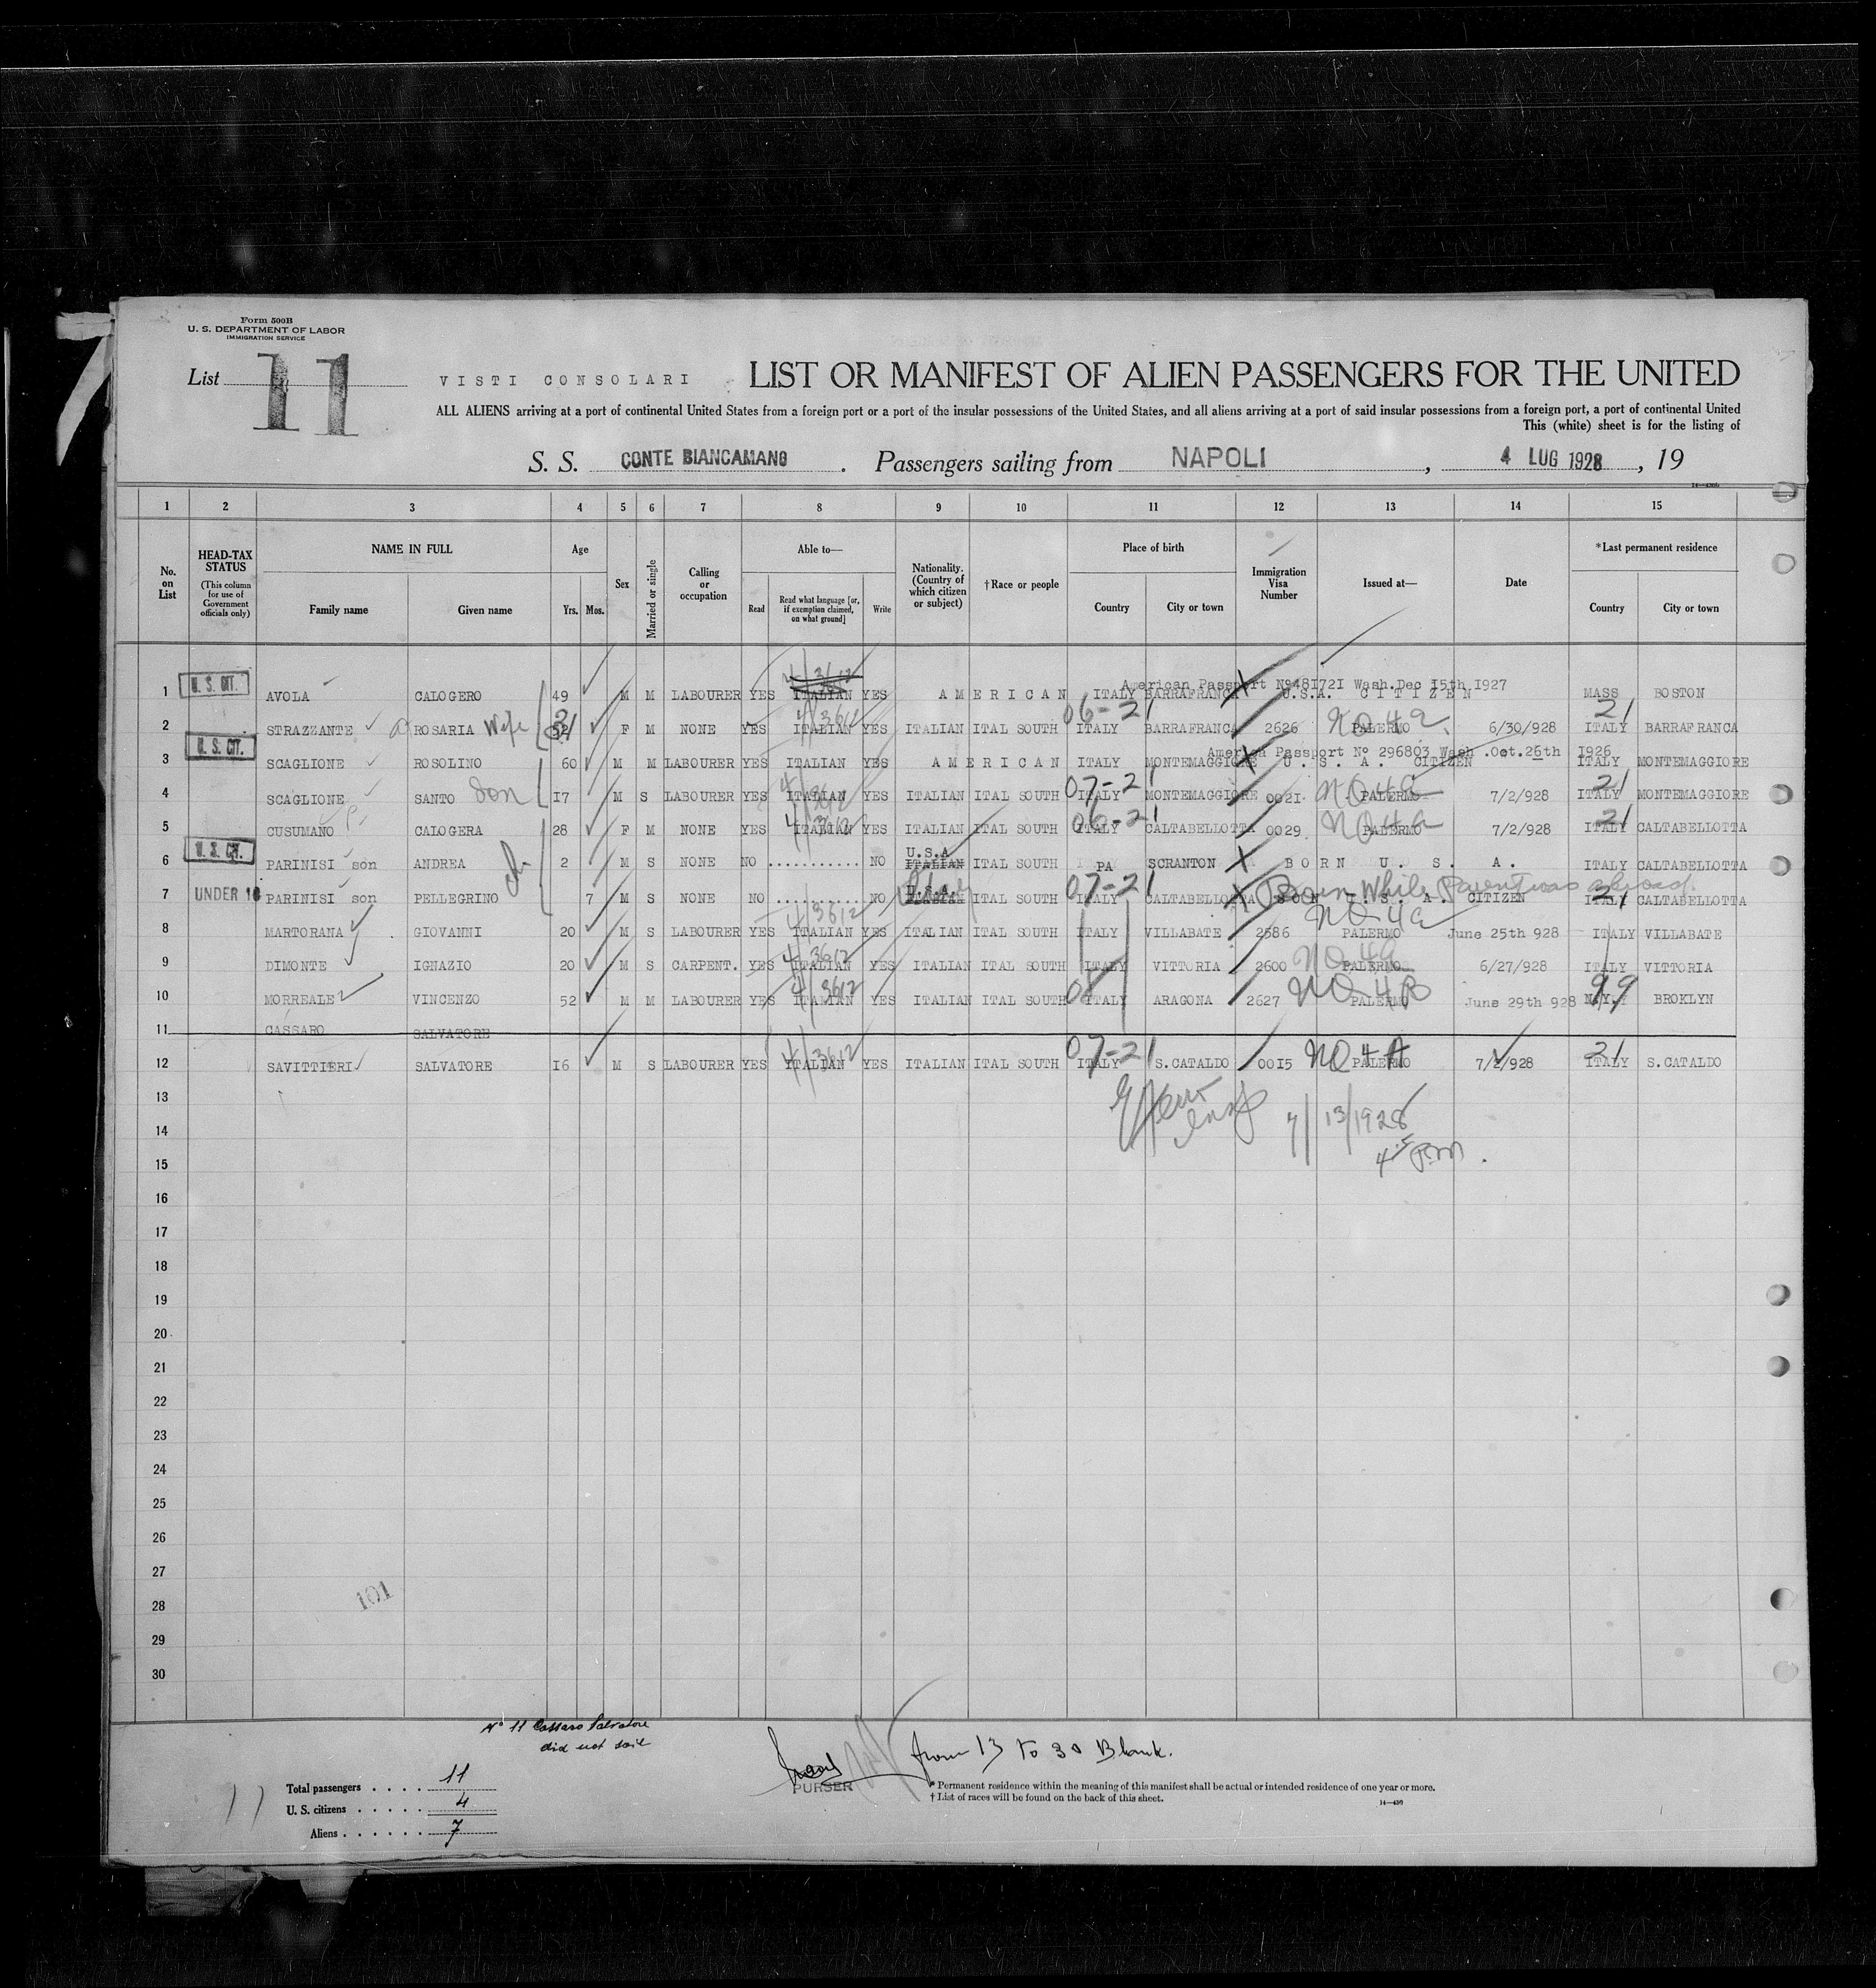 Form 500B
U. S. DEPARTMENT OF LABOR
IMMIGRATION SERVICE
List 11 VISTI CONSOLARI LIST OR MANIFEST OF ALIEN PASSENGERS FOR THE UNITED
ALL ALIENS arriving at a port of continental United States from a foreign port or a port of the insular possessions of the United States, and all aliens arriving at a port of said insular possessions from a foreign port, a port of continental United
This (white) sheet is for the listing of
S. S. CONTE BIANCAMANO . Passengers sailing from NAPOLI , 4 LUG 1928 , 19
1 2 3 4 5 6 7 8 9 10 11 12 13 14 15
No. on List HEAD-TAX STATUS (This column for use of Government officials only) NAME IN FULL Family name Given name Age Yrs. Mos. Sex Married or single Calling or occupation Able to— Read Read what language [or, if exemption claimed, on what ground] Write Nationality. (Country of which citizen or subject) †Race or people Place of birth Country City or town Immigration Visa Number Issued at— Date *Last permanent residence Country City or town
American Passport N948I72I Wash.Dec I5th I927
1 U. S. CIT. AVOLA CALOGERO 49 M M LABOURER YES ITALIAN YES AMERICAN ITALY BARRAFRANCA U.S.A. CITIZEN MASS BOSTON
06-21 21
2 STRAZZANTE ROSARIA Wife F M NONE YES 4/3612 ITALIAN YES ITALIAN ITAL SOUTH ITALY BARRAFRANCA 2626 PALERMO NQ 4a 6/30/928 ITALY BARRAFRANCA
American Passport No 296803 Wash .Oct.26th I926
3 U. S. CIT. SCAGLIONE ROSOLINO 60 M M LABOURER YES ITALIAN YES AMERICAN ITALY MONTEMAGGIORE U.S.A. CITIZEN ITALY MONTEMAGGIORE
4 SCAGLIONE SANTO Son I7 M S LABOURER YES ITALIAN YES ITALIAN ITAL SOUTH 07-21 ITALY MONTEMAGGIORE 002I. NQ 4a PALERMO 7/2/928 21 ITALY MONTEMAGGIORE
5 CUSUMANO CALOGERA 28 F M NONE YES 4/3612 ITALIAN YES ITALIAN ITAL SOUTH 06-21 ITALY CALTABELLOTTA 0029. NQ 4a PALERMO 7/2/928 21 ITALY CALTABELLOTTA
6 U. S. CIT. PARINISI son ANDREA 2 M S NONE NO ........... NO U.S.A ITALIAN ITAL SOUTH PA SCRANTON BORN U. S. A. ITALY CALTABELLOTTA
7 UNDER 16 PARINISI son PELLEGRINO 7 M S NONE NO ........... NO U.S.A. ITALIAN Italy ITAL SOUTH 07-21 ITALY CALTABELLOTTA Born While Parent was abroad. SON U.S.A. CITIZEN 21 ITALY CALTABELLOTTA
8 MARTORANA GIOVANNI 20 M S LABOURER YES 4/3612 ITALIAN YES ITALIAN ITAL SOUTH ITALY VILLABATE 2586 NQ 4a PALERMO June 25th 928 ITALY VILLABATE
9 DIMONTE IGNAZIO 20 M S CARPENT. YES 4/3612 ITALIAN YES ITALIAN ITAL SOUTH ITALY VITTORIA 2600 NQ 4a PALERMO 6/27/928 ITALY VITTORIA
10 MORREALE VINCENZO 52 M M LABOURER YES 4/3612 ITALIAN YES ITALIAN ITAL SOUTH ITALY ARAGONA 2627 NQ 4B PALERMO June 29th 928 N.Y. 99 BROKLYN
11 CASSARO SALVATORE
12 SAVITTIERI SALVATORE I6 M S LABOURER YES 4/3612 ITALIAN YES ITALIAN ITAL SOUTH 07-21 ITALY S.CATALDO 00I5 NQ 4A PALERMO 7/2/928 21 ITALY S.CATALDO
13
14 7/13/1928
15 4 PM.
16
17
18
19
20
21
22
23
24
25
26
27
28 101
29
30
No 11 Cassaro Salvatore
did not sail
from 13 to 30 Blank.
PURSER
Total passengers . . . . . 11
U. S. citizens . . . . . 4
Aliens . . . . . . 7
* Permanent residence within the meaning of this manifest shall be actual or intended residence of one year or more.
† List of races will be found on the back of this sheet.